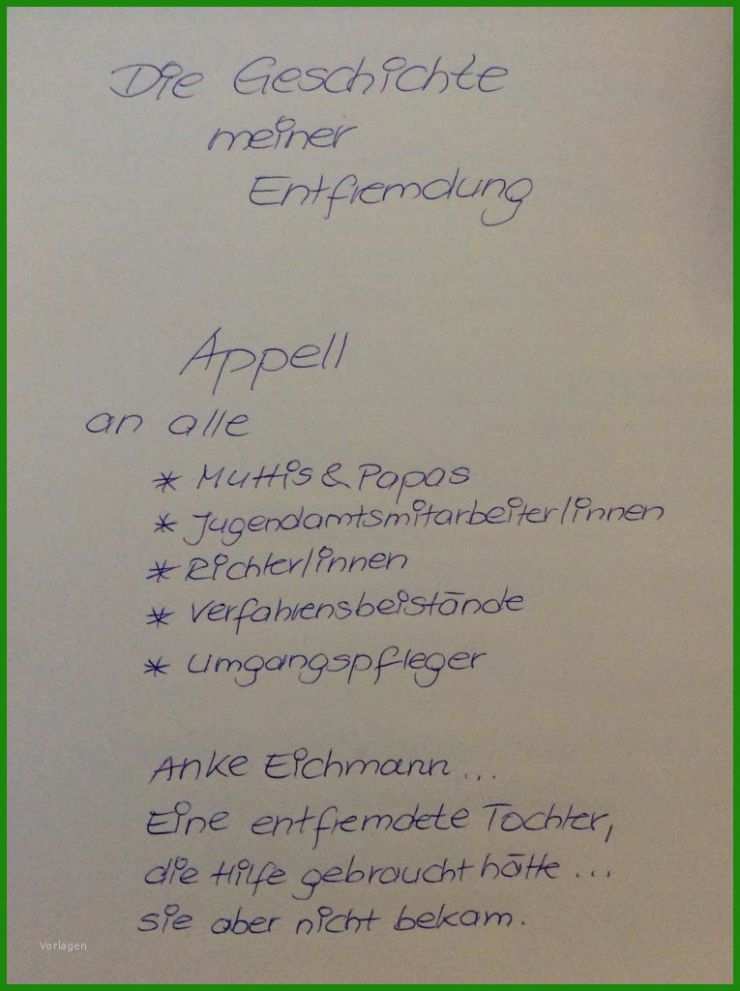 Die Geschichte
meiner
Entfremdung
Appell
an alle
* Muttis & Papas
* Jugendamtsmitarbeiter/innen
* Richter/innen
* Verfahrensbeistände
* Umgangspfleger
Anke Eichmann...
Eine entfremdete Tochter,
die Hilfe gebraucht hätte...
sie aber nicht bekam.
Vorlagen